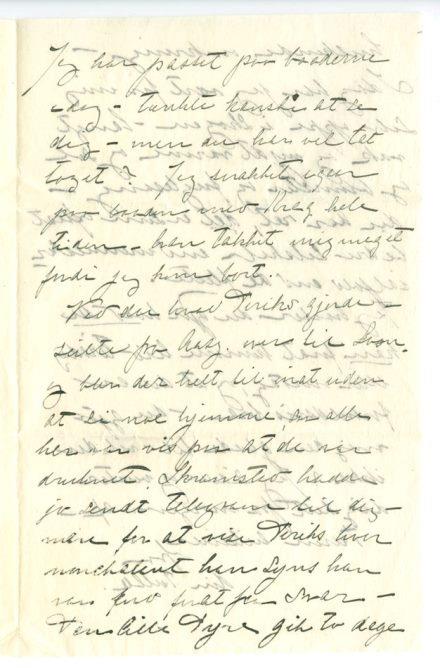 Jeg har passet paa baaderne
idag – tænkte kanske at se
dig – men du har vel tat
toget? Jeg snakket igaar
paa baaden med Krag hele
tiden – han takket mig meget
fordi jeg kom bort.
Ved du hvad Diriks gjorde –
seilte fra Aasg. over til Svon.
og blev der trett til mat uden
at si noe hjemme, og alle
her var vis paa at de var
druknet Skramstad hadde
jo sendt telegram til dig –
mere for at vise Diriks hvor
nonchalent han Syns han
var end fordi for svar –
Den lille Dyre gik to dage